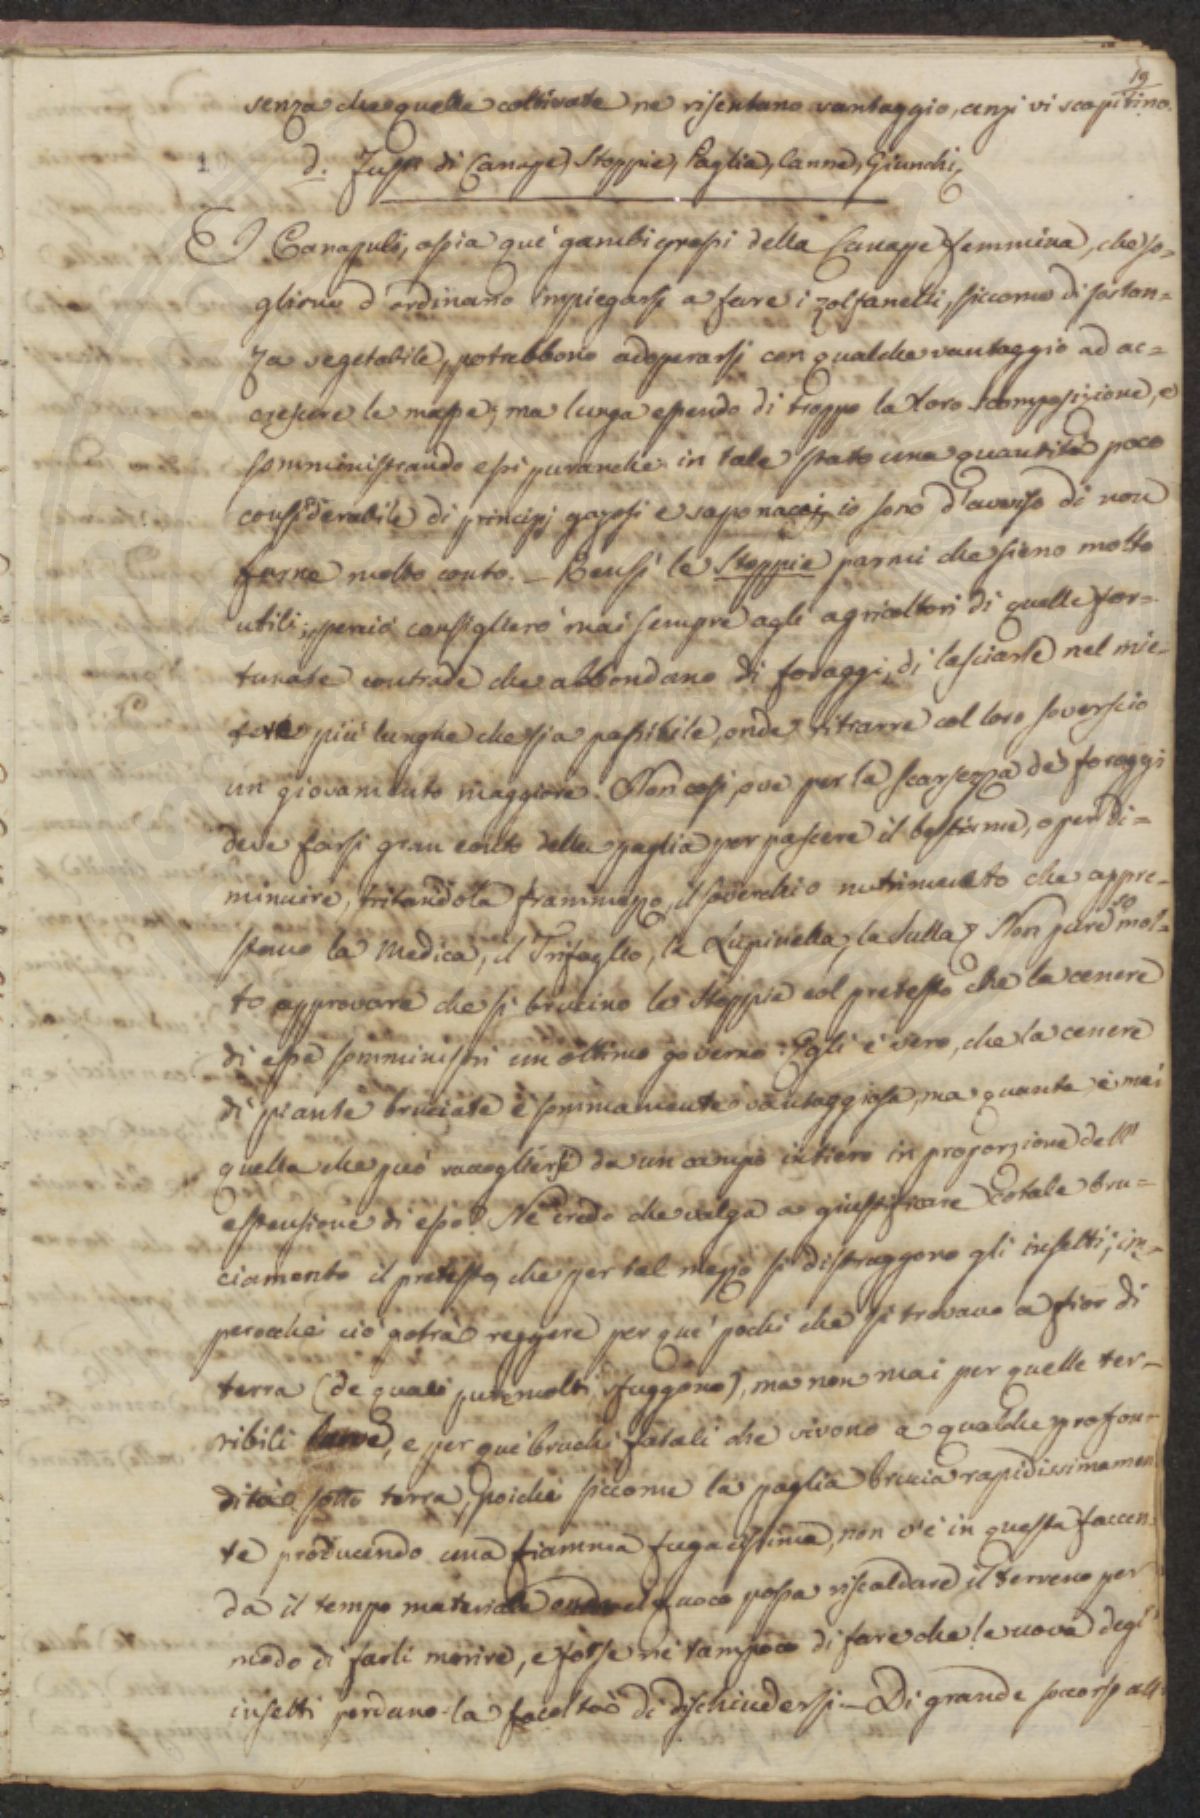 19
senza che quelle coltivate ne risentano vantaggio, anzi vi scapitino.
d. Fusti di Canape, Stoppie, Paglia, Canne, Giunchi,
I Canapuli, ossia que' gambi grossi della Canape femmina, che so=
gliono d'ordinario impiegarsi a fare i zolfanelli, siccome di sostan=
za vegetabile, potrebbono adoperarsi con qualche vantaggio ad ac=
crescere le masse; ma lunga essendo di troppo la loro scomposizione, e
somministrando essi puranche in tale stato una quantità poco
considerabile di principj gazosi e saponacei, io sono d'avviso di non
farne molto conto. _ Bensì le Stoppie parmi che sieno molto
utili; perciò consiglierò mai sempre agli agricoltori di quelle for=
tunate contrade che abbondano di foraggi, di lasciarle nel mie=
tere più lunghe che sia possibile, onde ritrarre col loro soverscio
un giovamento maggiore. Non così, ove per la scarsezza de' foraggi
deve farsi gran conto della paglia per pascere il bestiame, o per di=
minuire, tritandola frammezzo, il soverchio nutrimento che appre=
stano la Medica, il Trifoglio, la Lupinella, la Sulla. Non pure so mol=
to approvare che si brucino le Stoppie col pretesto che la cenere
di esse somministri un ottimo governo. Egli è vero, che la cenere
di piante bruciate è sommamente vantaggiosa, ma quanta è mai
quella che può raccogliersi da un campo intiero in proporzione dell'
estensione di esso? Nè credo che valga a giustificare cotale bru=
ciamento il pretesto, che per tal mezzo si distruggono gli insetti; im=
perocchè ciò potrà reggere per que' pochi che si trovano a fior di
terra (de' quali pure molti sfuggono), ma non mai per quelle ter=
ribili larve, e per que' bruchi fatali che vivono a qualche profon=
dità sotto terra, poichè siccome la paglia brucia rapidissimamen
te producendo una fiamma fugacissima, non v'è in questa faccen=
da il tempo materiale onde il fuoco possa riscaldare il terreno per
modo di farli morire, e forse nè tampoco di fare che le uova degl'
insetti perdano la facoltà di dischiudersi. _ Di grande soccorso all'